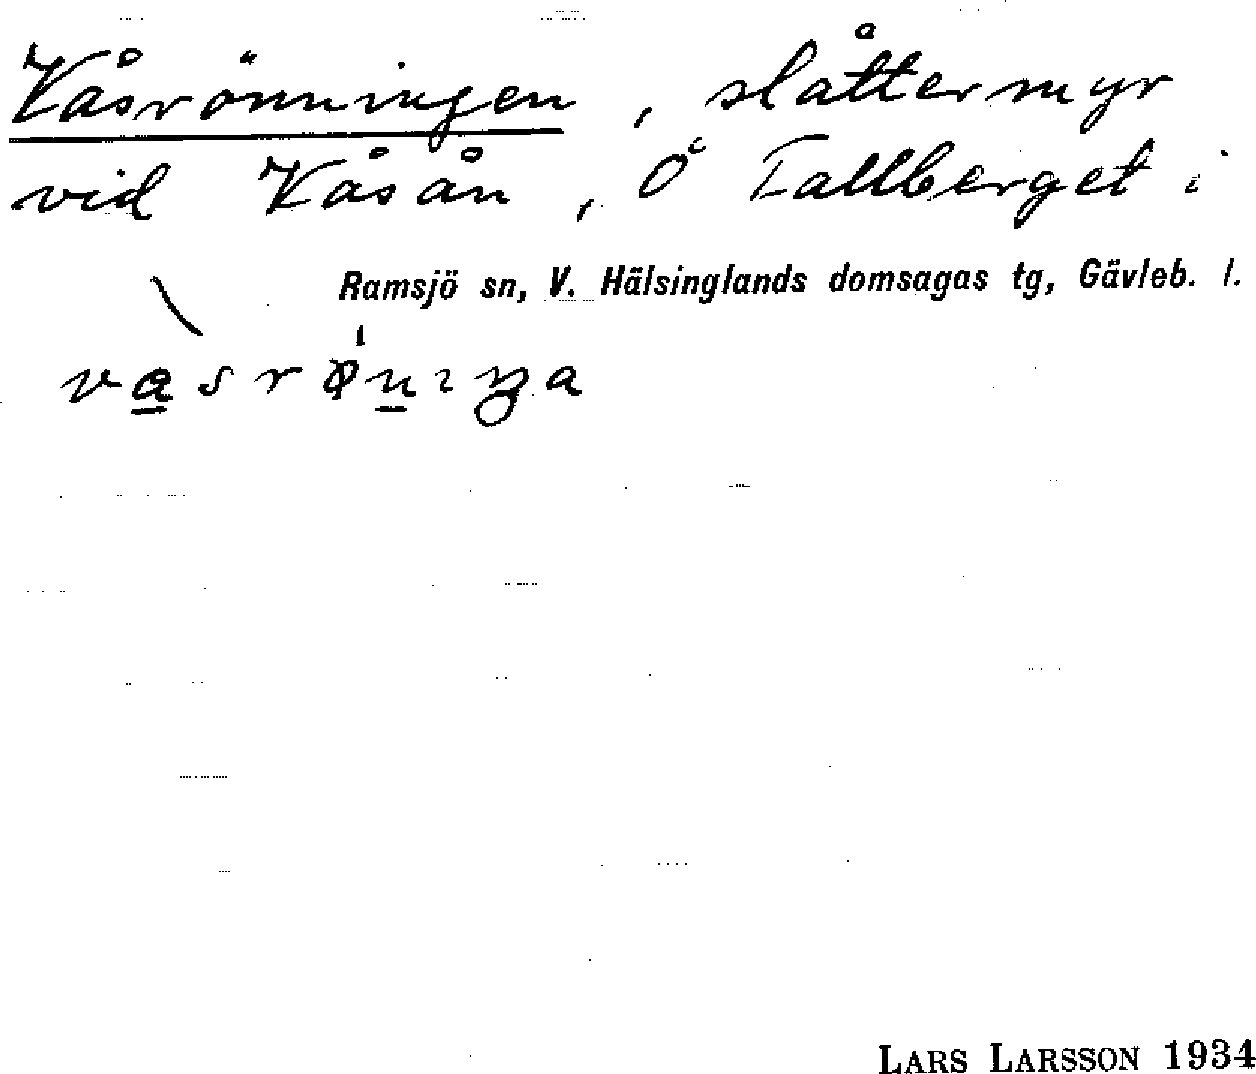 Våsrönningen, slåttermyr
vid Våsån, Ö Tallberget i
Ramsjö sn, V. Hälsinglands domsagas tg, Gävleb. l.
LARS LARSSON 1934